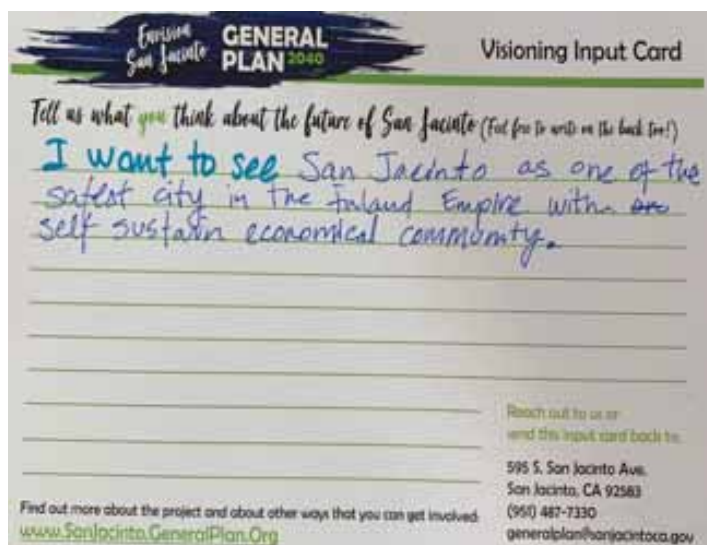 Envision
San Jacinto
GENERAL
PLAN 2040
Visioning Input Card
Tell us what you think about the future of San Jacinto (Feel free to write on the back too!)
I want to see San Jacinto as one of the
safest city in the Inland Empire with an
self sustain economical community.
Reach out to us or
send this input card back to:
595 S. San Jacinto Ave.
San Jacinto, CA 92583
(951) 487-7330
generalplan@sanjacintoca.gov
Find out more about the project and about other ways that you can get involved:
www.SanJacinto.GeneralPlan.Org